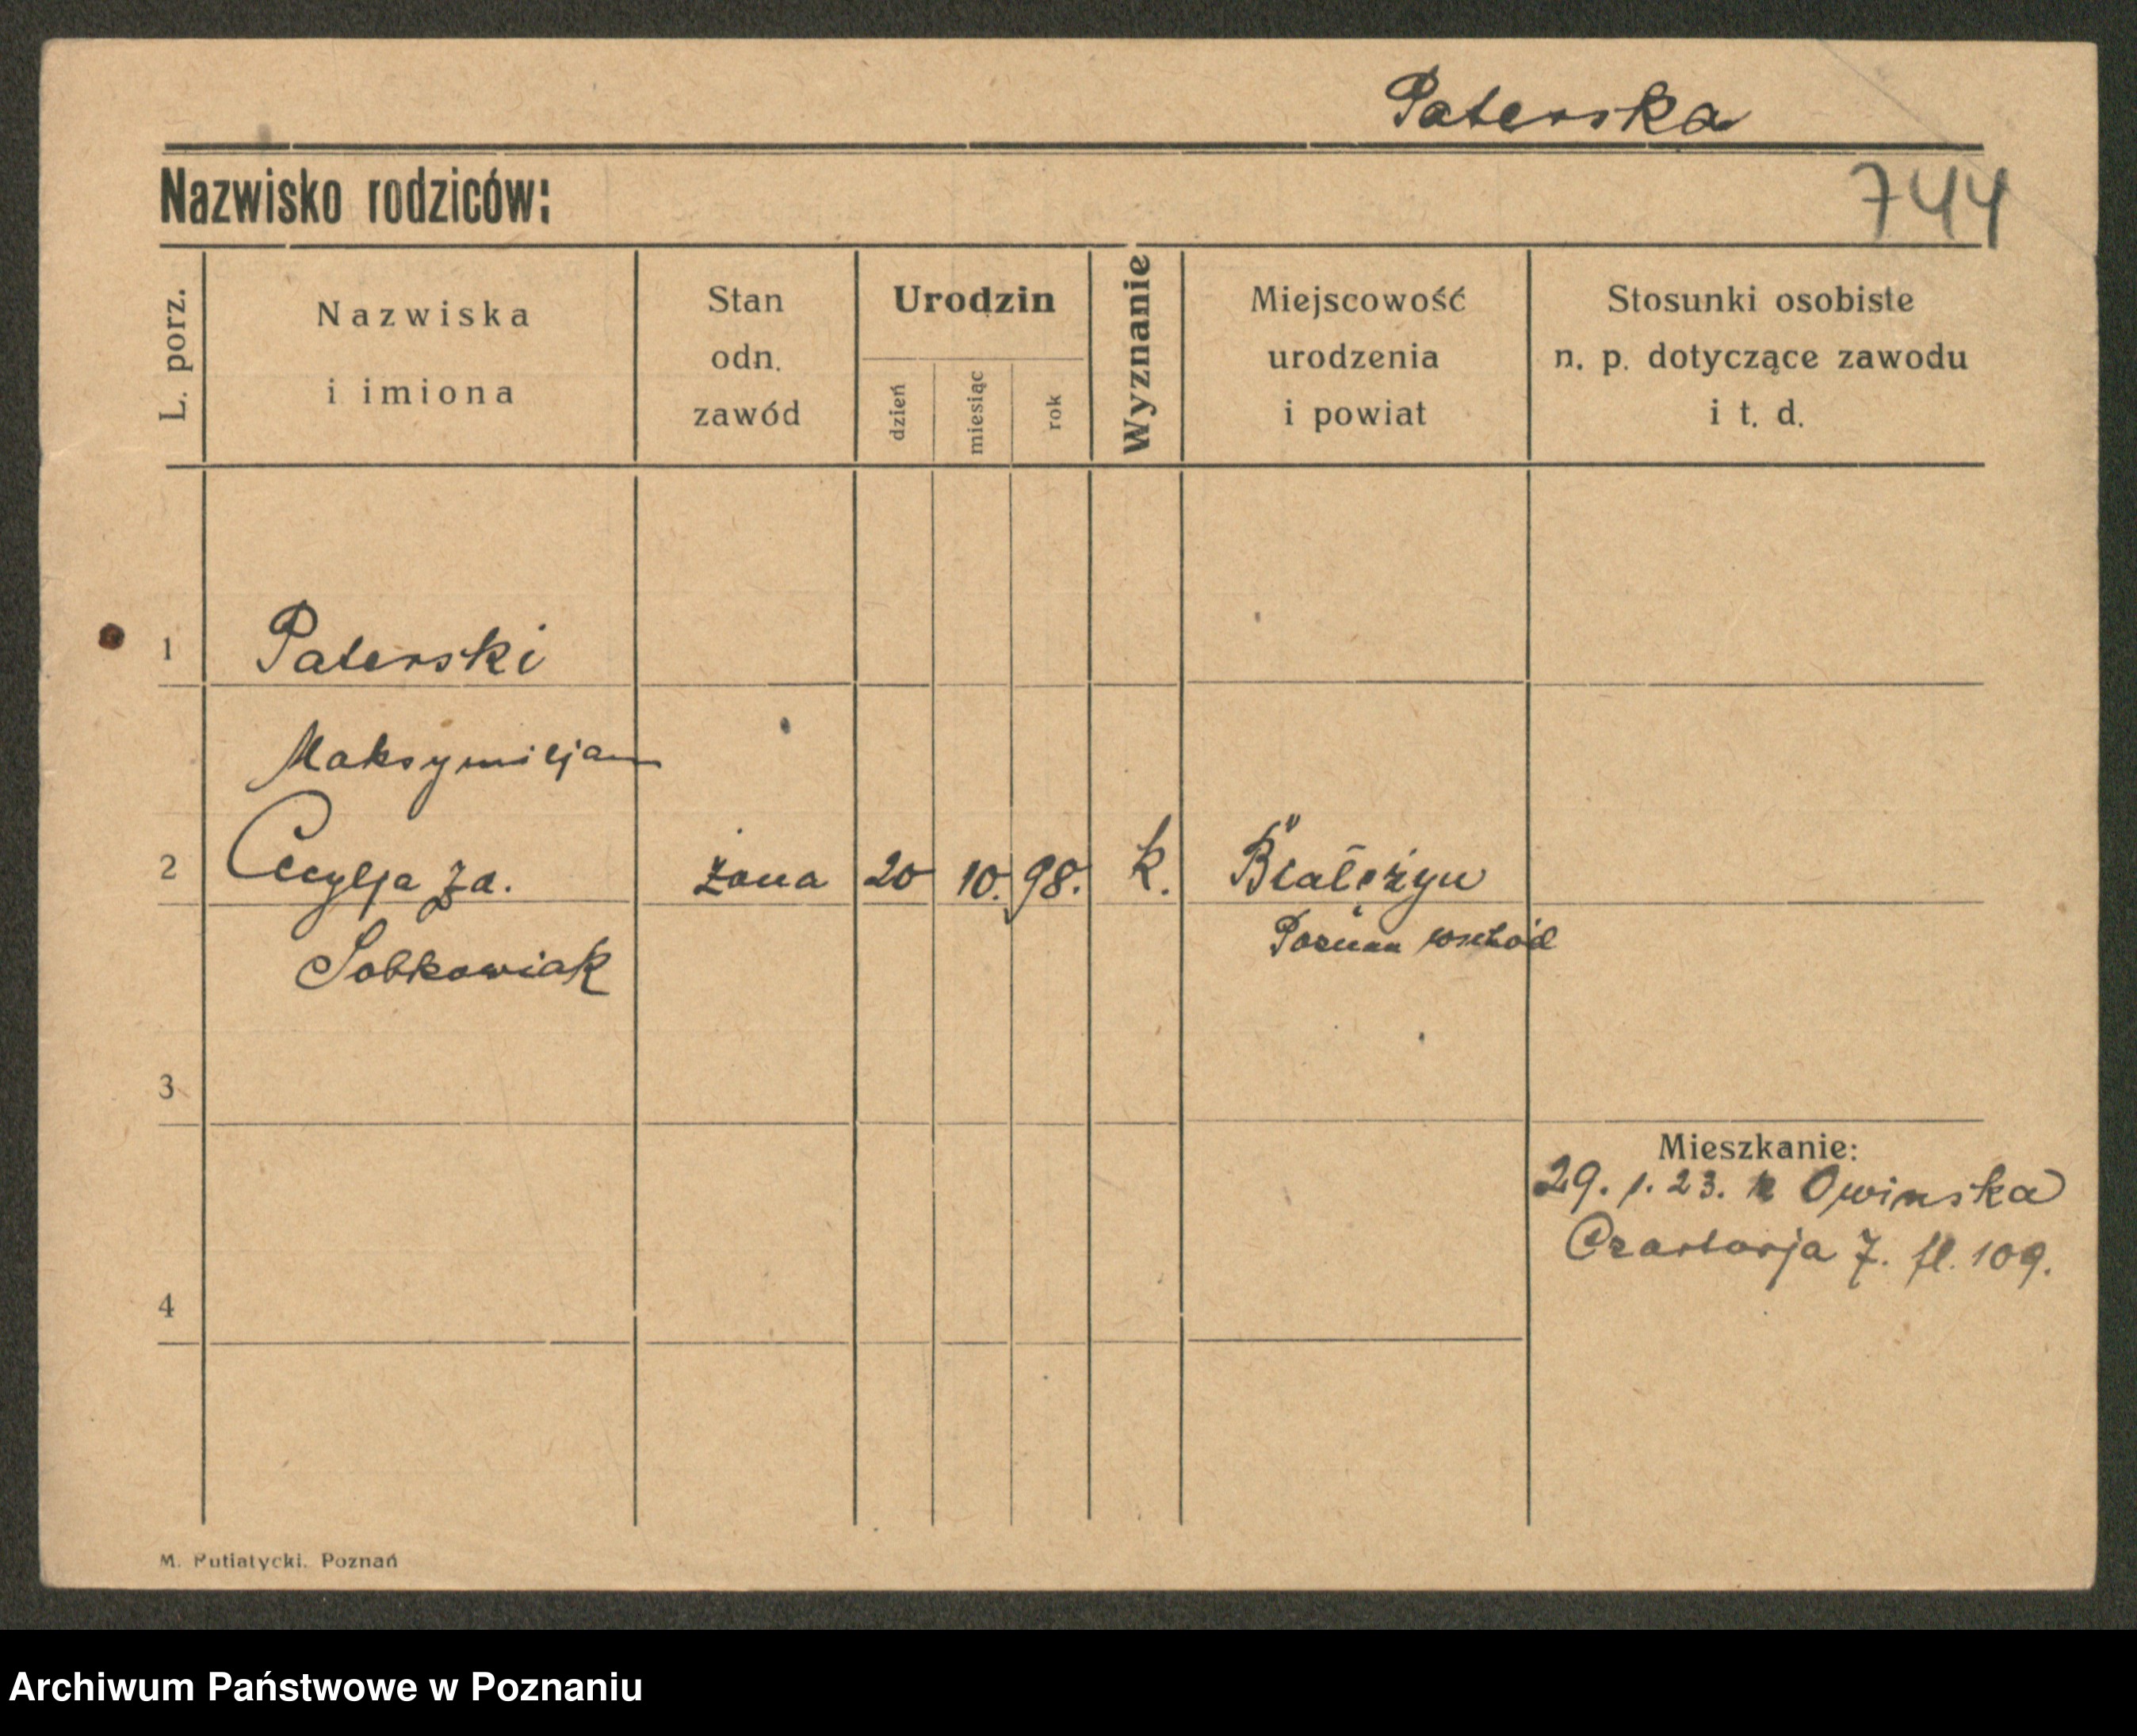 Paterska
Nazwisko rodziców:
744
L. porz.
Nazwiska
i imiona
Stan
odn.
zawód
Urodzin
dzień
miesiąc
rok
Wyznanie
Miejscowość
urodzenia
i powiat
Stosunki osobiste
n. p. dotyczące zawodu
i t. d.
1 Paterski
Maksymiljan
2 Cecylja za. żona 20 10. 98. k.
Poznań wschód
Sobkowiak
3
Mieszkanie:
29. 1. 23. Owinska
Czartorja 7. fl. 109.
4
M. Putiatycki. Poznań
Archiwum Państwowe w Poznaniu